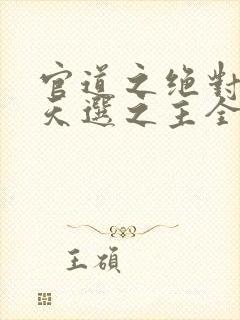 官道之绝對
天選之主全
王碩